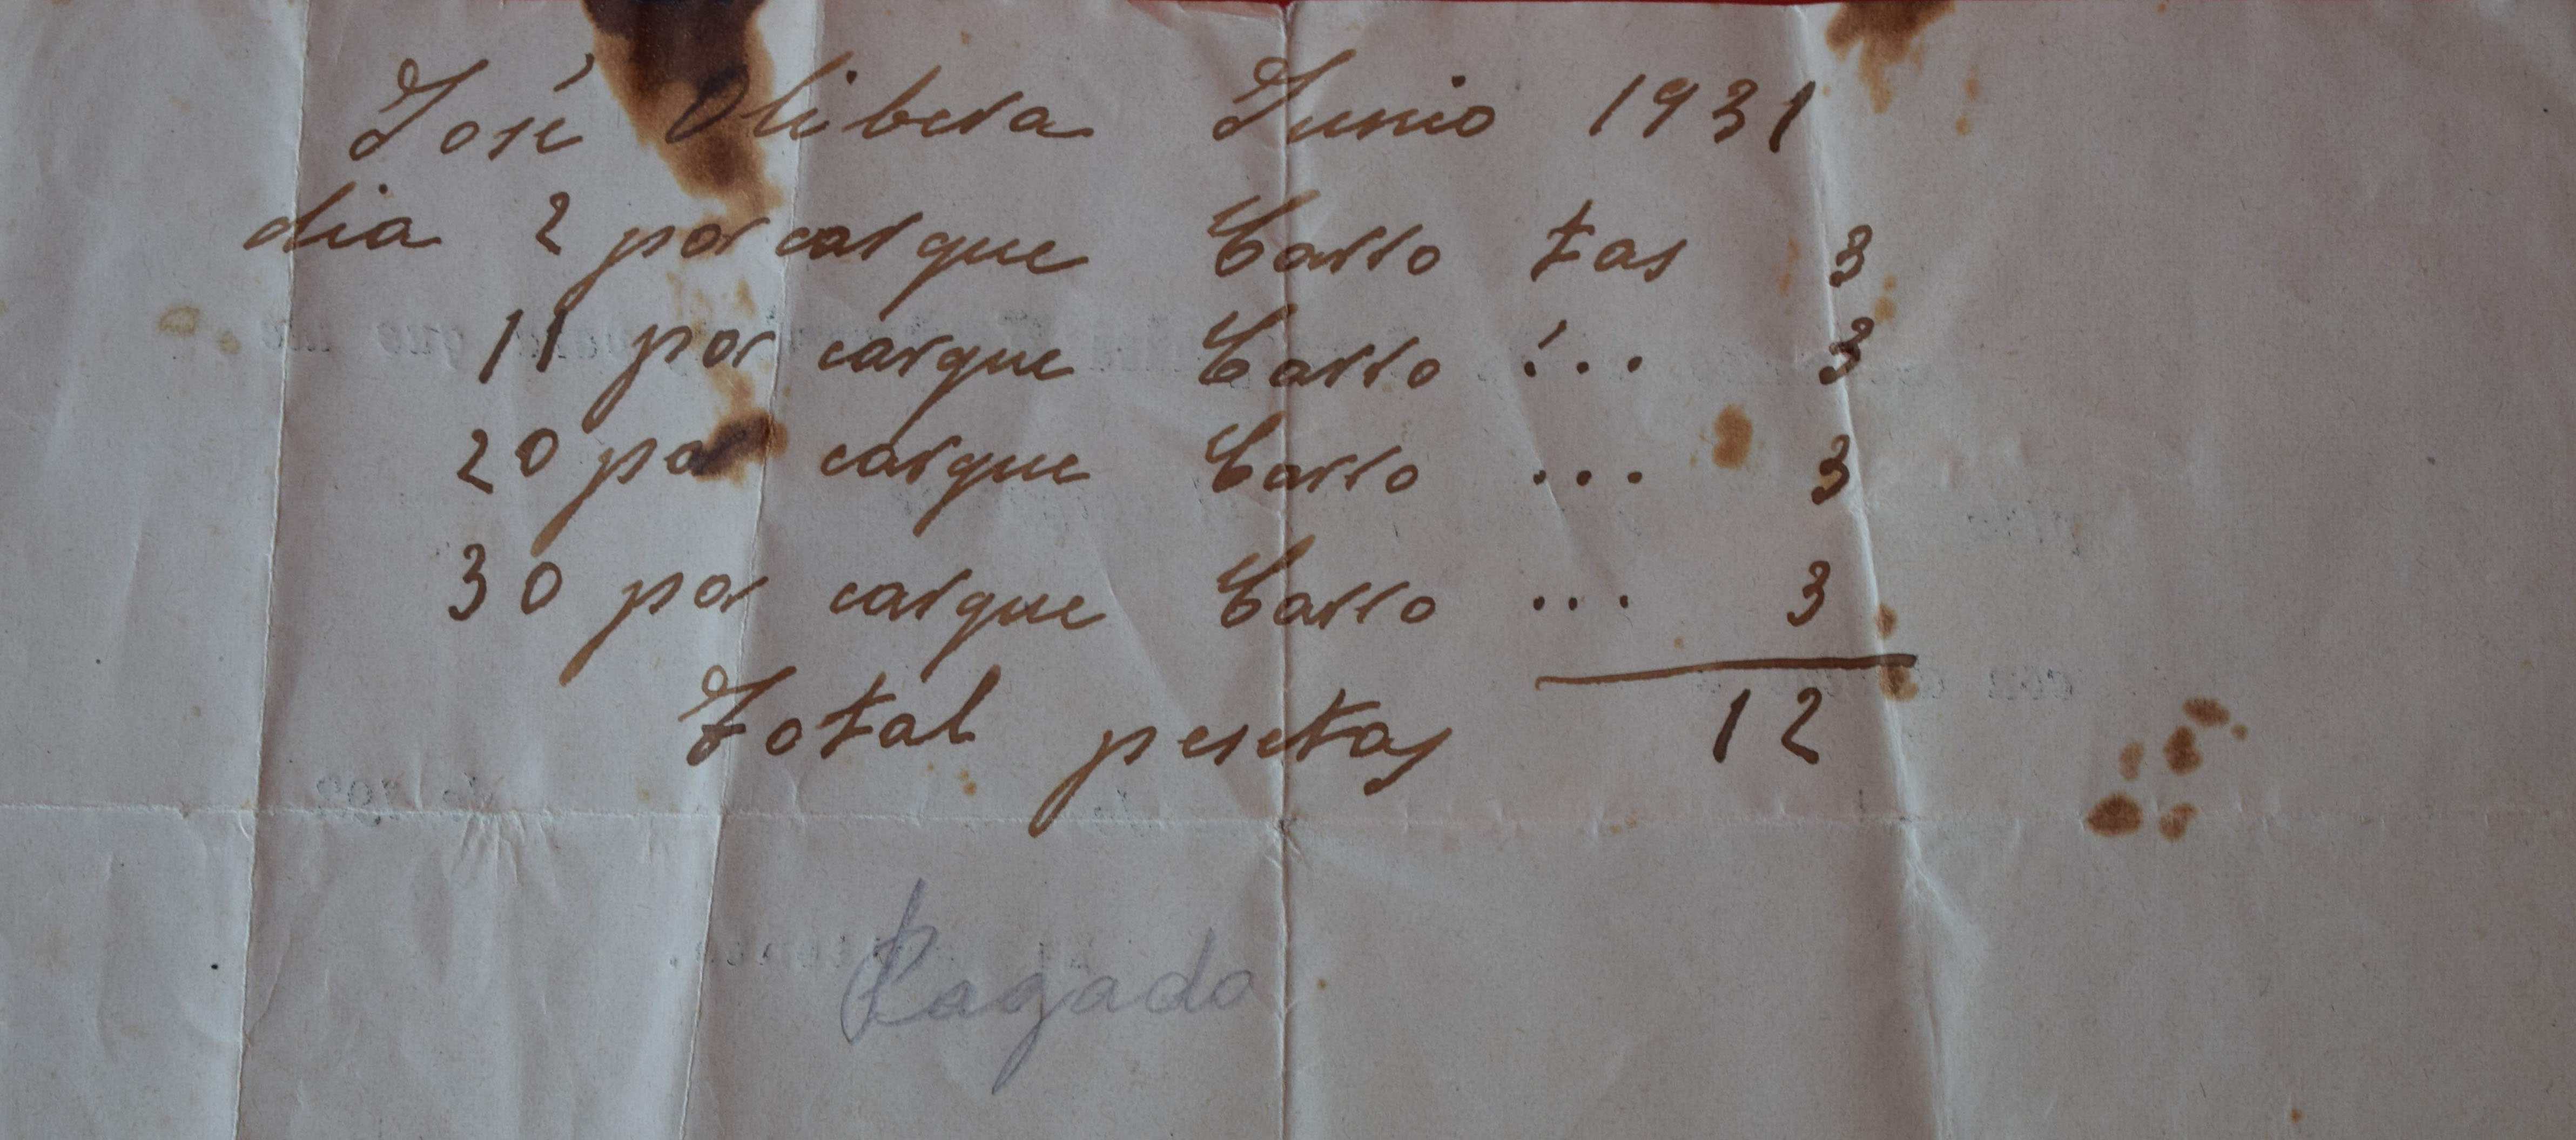 José Olibera Junio 1931
dia 2 por cargue Carro tas 3
11 por cargue Carro ... 3
20 por cargue Carro ... 3
30 por cargue Carro ... 3
Total pesetas 12
Pagado